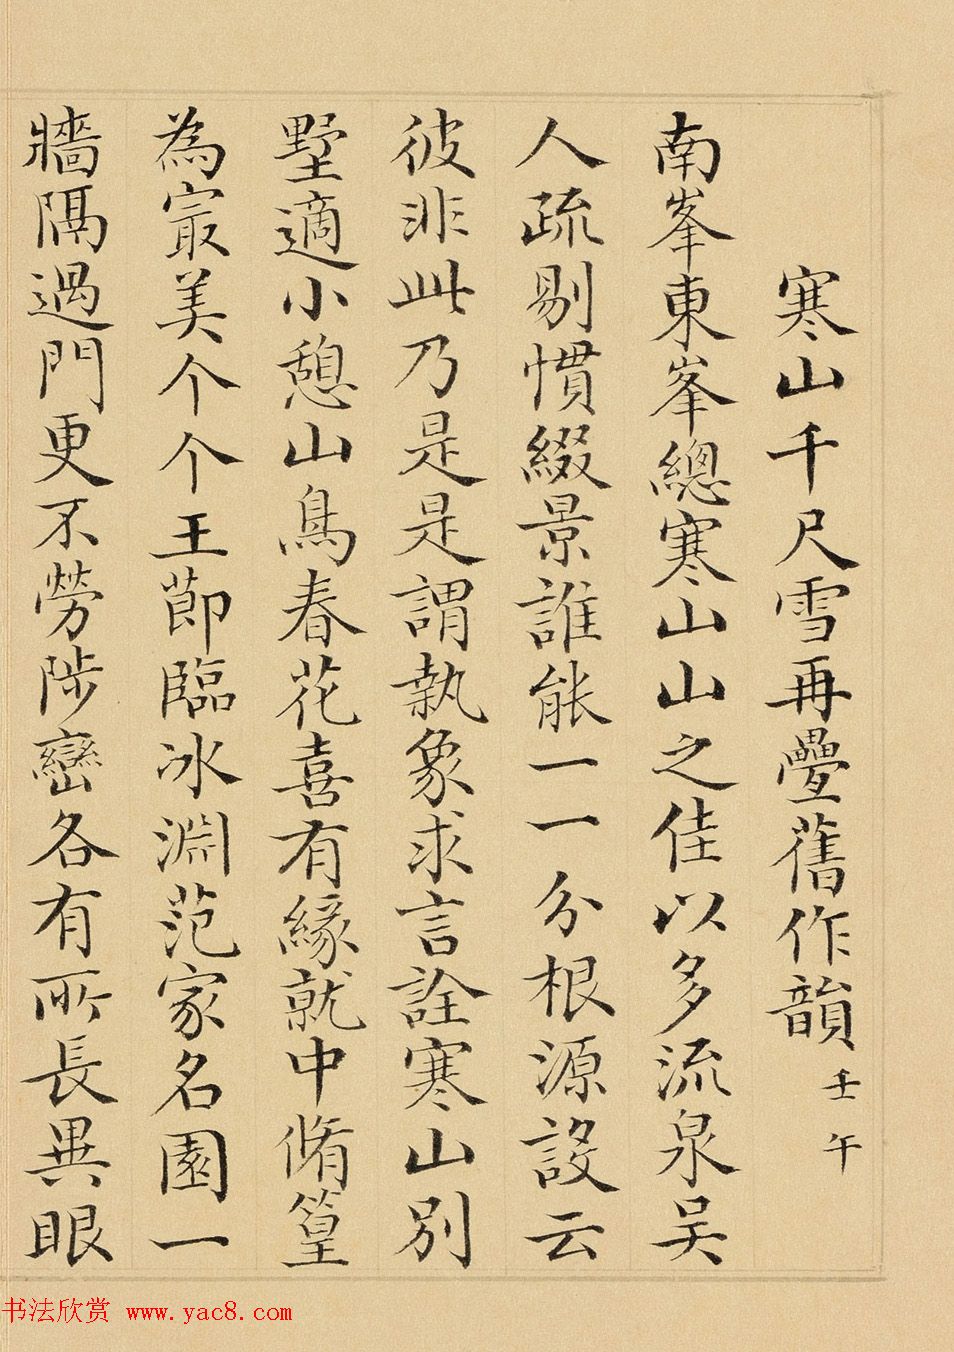 寒山千尺雪再疊舊作韻 壬午
南峯東峯總寒山山之佳以多流泉吴
人疏剔慣綴景誰能一一分根源設云
彼非此乃是是謂執象求言詮寒山别
墅適小憩山鳥春花喜有緣就中脩篁
為冣美个个王莭臨冰淵范家名園一
牆隔過門更不勞陟巒各有所長異眼
书法欣赏 www.yac8.com